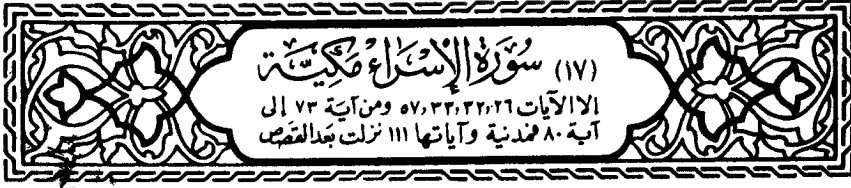 (١٧) سُوْرَةِ الإِسْرَاءِ مَكِيَّة
إلا الآيات ٢٦،٣٢،٣٣،٥٧ ومن آية ٧٣ إلى
آية ٨٠ فمدنية وآياتها ١١١ نزلت بعد القصص